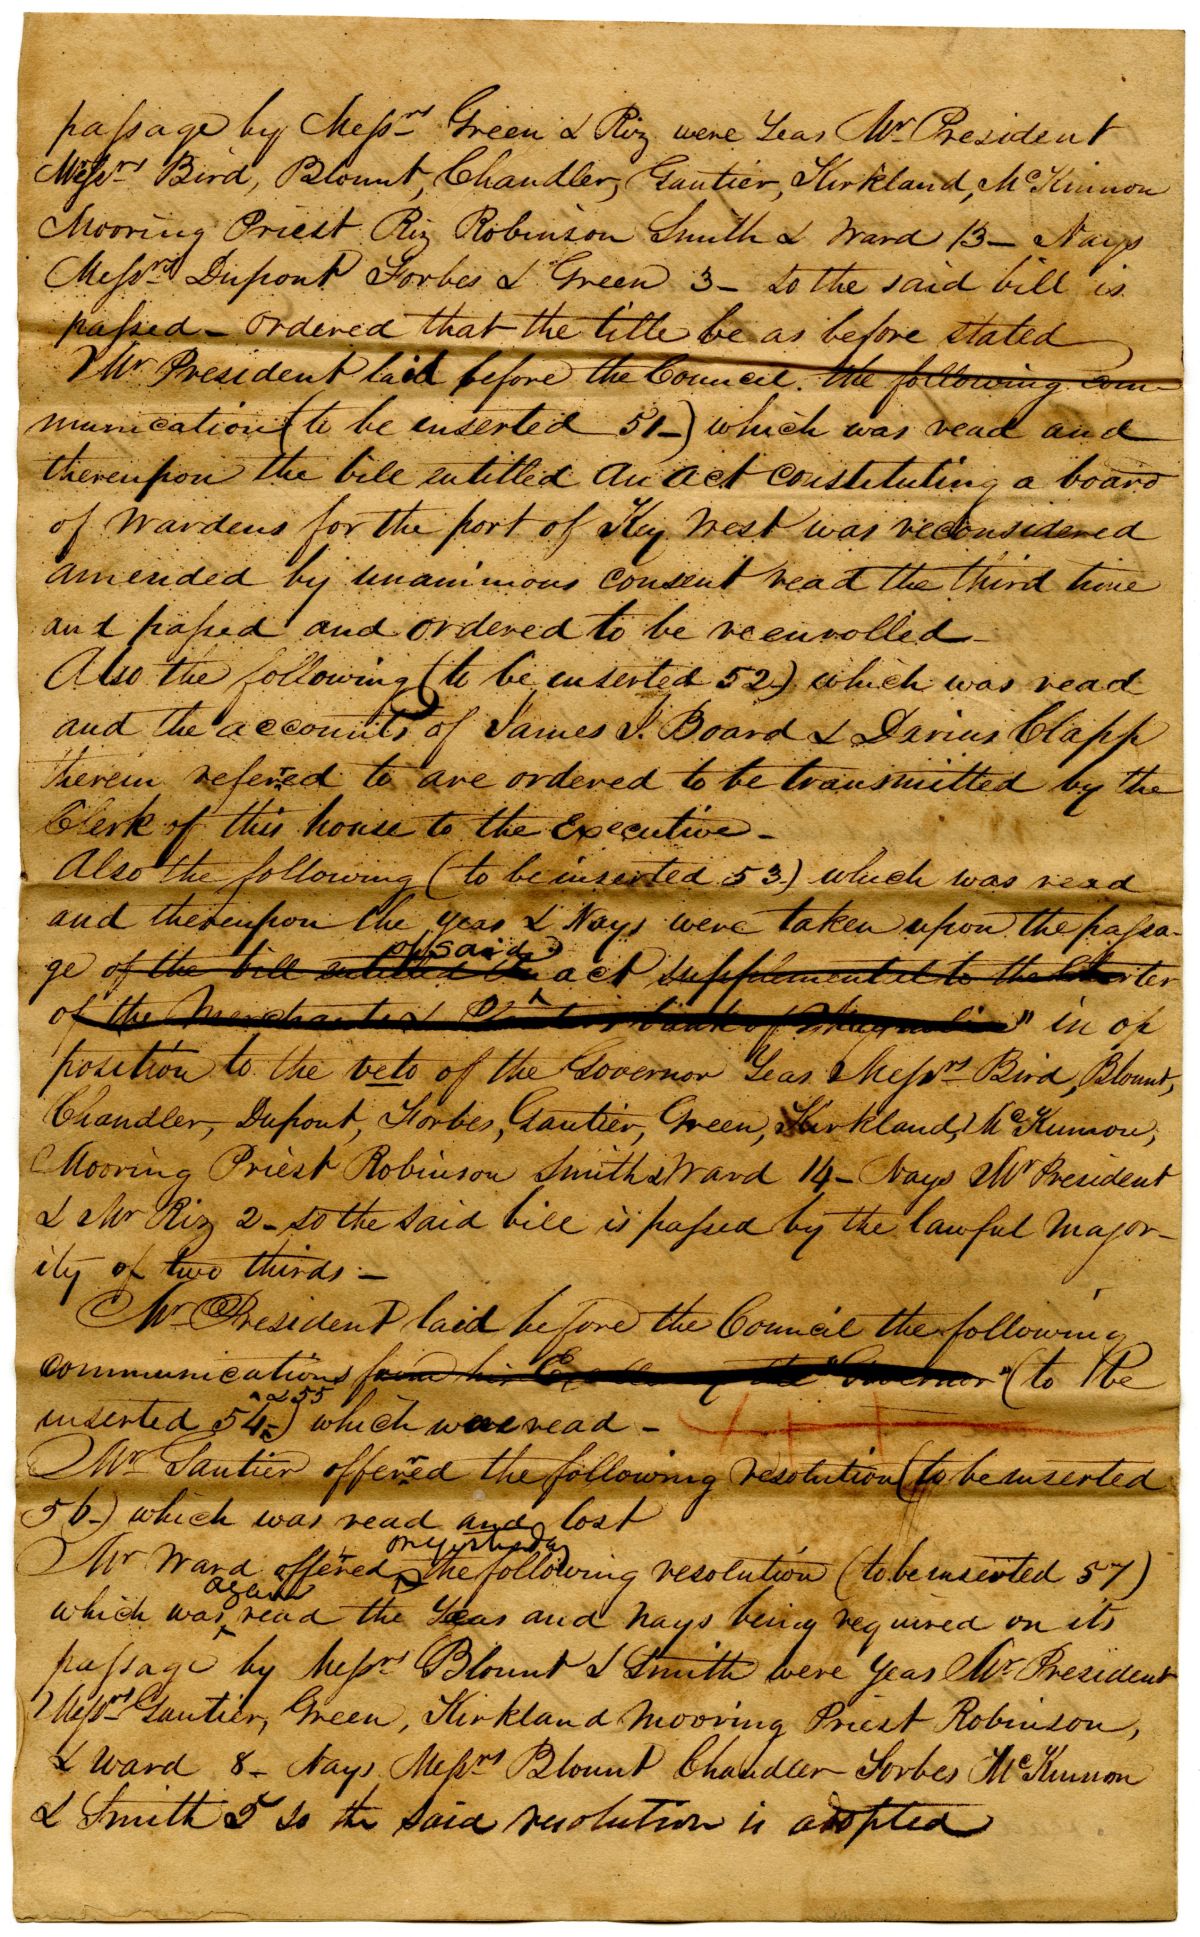 passage by Messrs Green & Riz were Yeas Mr President
Messrs Bird, Blount, Chandler, Gautier, Kirkland, McKinnon
Mooring Priest Riz Robinson Smith & Ward 13 — Nays
Messrs Dupont Forbes & Green 3 — so the said bill is
passed — ordered that the title be as before stated
Mr President laid before the Council the following com-
munication (to be inserted 51 —) which was read and
thereupon the bill entitled An act constituting a board
of Wardens for the port of Key West was reconsidered
amended by unanimous consent read the third time
and passed and ordered to be reenrolled —
Also the following (to be inserted 52) which was read
and the accounts of James J. Board & Darius Clapp
therein referred to are ordered to be transmitted by the
Clerk of this house to the Executive —
Also the following (to be inserted 53) which was read
and thereupon the yeas & Nays were taken upon the passa-
of said
ge of the bill entitled An act supplemental to the Charter
of the Merchants & Planters bank of Magnolia" in op
position to the veto of the Governor Yeas Messrs Bird, Blount,
Chandler, Dupont, Forbes, Gautier, Green, Kirkland, McKinnon,
Mooring Priest Robinson Smith & Ward 14 — Nays Mr President
& Mr Riz 2 — so the said bill is passed by the lawful major-
ity of two thirds —
Mr President laid before the Council the following
communications from his Excellency the "Governor" (to be
& 55
inserted 54 —) which was read —
Mr Gautier offered the following resolution (to be inserted
56 —) which was read and lost
on yesterday
Mr Ward offered the following resolution (to be inserted 57)
again
which was read the Yeas and nays being required on its
passage by Messrs Blount & Smith were yeas Mr President
Messrs Gautier, Green, Kirkland Mooring Priest Robinson,
& Ward 8 — Nays Messrs Blount Chandler Forbes McKinnon
& Smith 5 so the said resolution is adopted